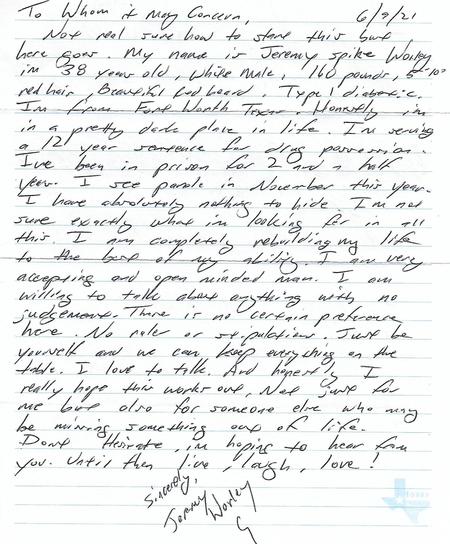 To Whom it May Concern, 6/9/21
Not real sure how to start this but
here goes. My name is Jeremy Spike Worley
im 38 years old, White Male, 160 pounds, 5"-10"
red hair, Beautiful red beard. Type 1 diabetic.
Im from Fort Worth Texas. Honestly im
in a pretty dark place in life. I'm serving
a 12 year sentence for drug possession.
I've been in prison for 2 and a half
years. I see parole in November this year.
I have absolutely nothing to hide. I'm not
sure exactly what im looking for in all
this. I am completely rebuilding my life
to the best of my ability. I am very
accepting and open minded man. I am
willing to talk about anything with no
judgement. There is no certain preference
here. No rules or stipulations. Just be
yourself and we can keep everything on the
table. I love to talk. And honestly I
really hope this works out, Not just for
me but also for someone else who may
be missing something out of life.
Dont Hesitate, im hoping to hear from
you. Until then live, laugh, love!
Sincerely,
Jeremy Worley